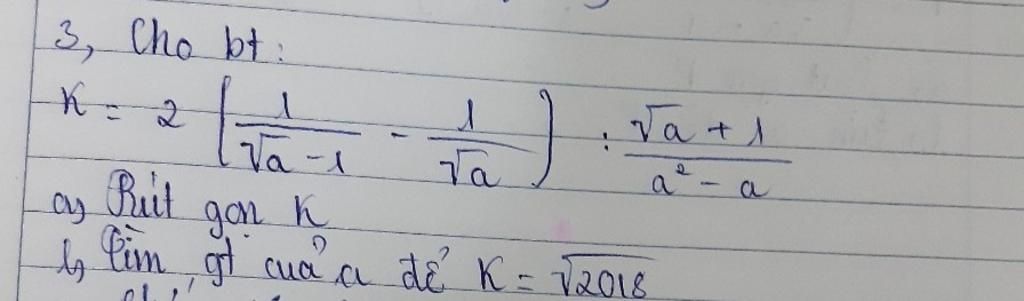 3, Cho bt:
K = 2 [ 1/(√a - 1) - 1/√a ] : (√a + 1)/(a² - a)
a, Rút gọn K
b, Tìm gt của a để K = √2018